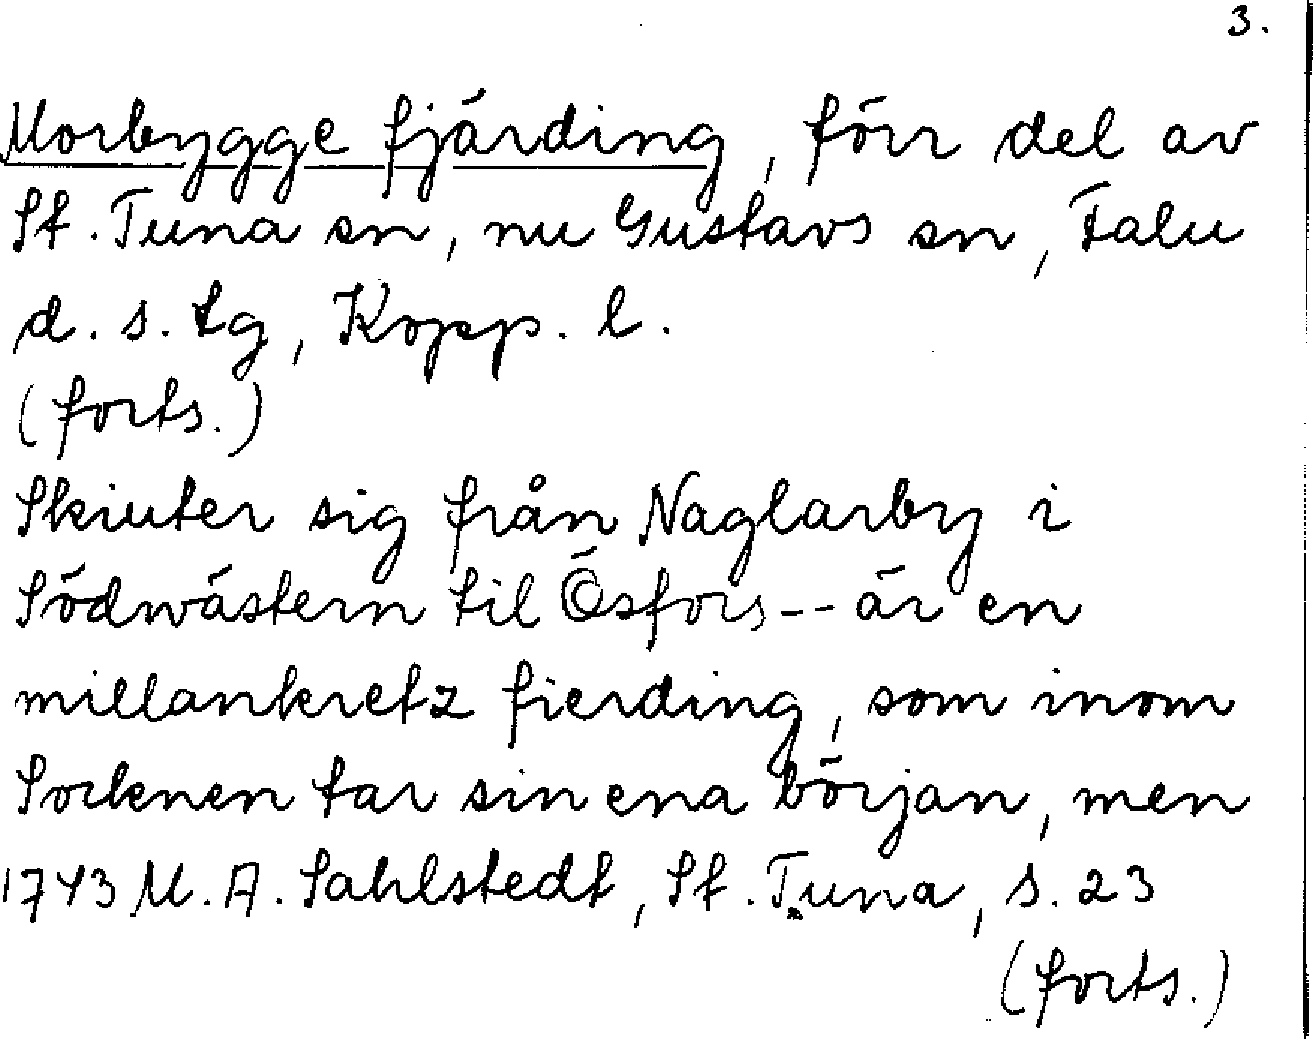 3.
Morbygge fjärding, förr del av
St. Tuna sn, nu Gustavs sn, Falu
d. s. tg, Kopp. l.
(forts.)
Skiuter sig från Naglarby i
Södwästern til Ösfors -- är en
millankretz fierding, som inom
Socknen tar sin ena början, men
1743 M. A. Sahlstedt, St. Tuna, s. 23
(forts.)